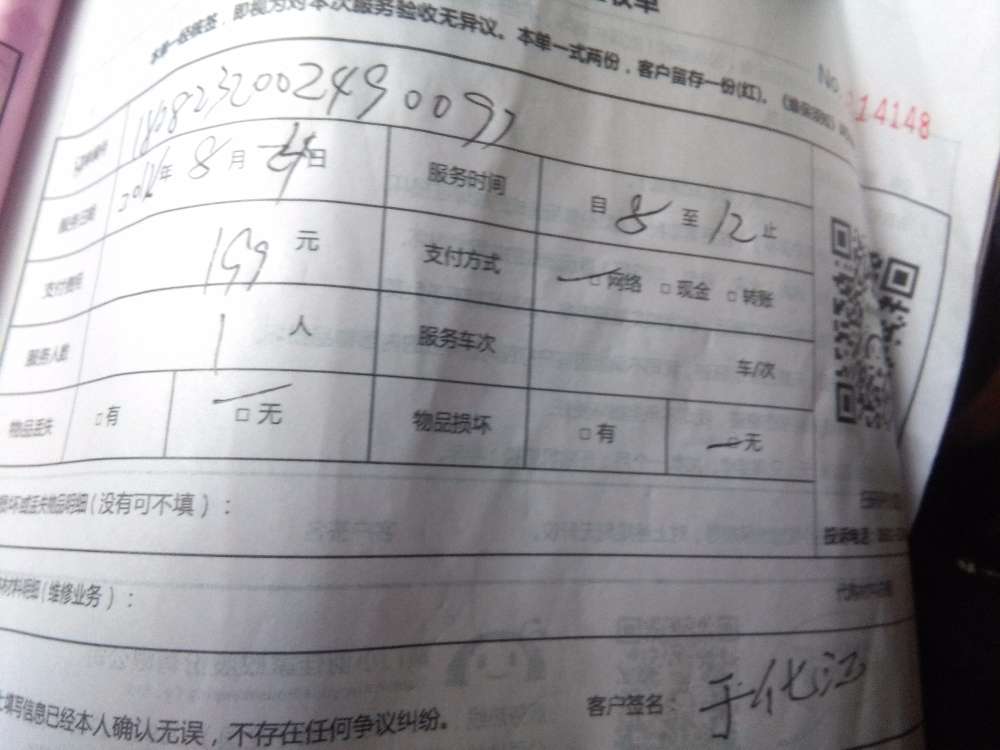 收单
本单一经核签，即视为对本次服务验收无异议。本单一式两份，客户留存一份(红)。
No 14148
180823200249009
服务日期 年 8 月 日 服务时间 自 8 至 12 止
支付费用 199 元 支付方式 □网络 □现金 □转账
服务人数 1 人 服务车次 车/次
物品丢失 □有 □无 物品损坏 □有 □无
损坏或丢失物品明细(没有可不填)：
投诉电话：
材料明细(维修业务)：
填写信息已经本人确认无误，不存在任何争议纠纷。
客户签名： 于化江